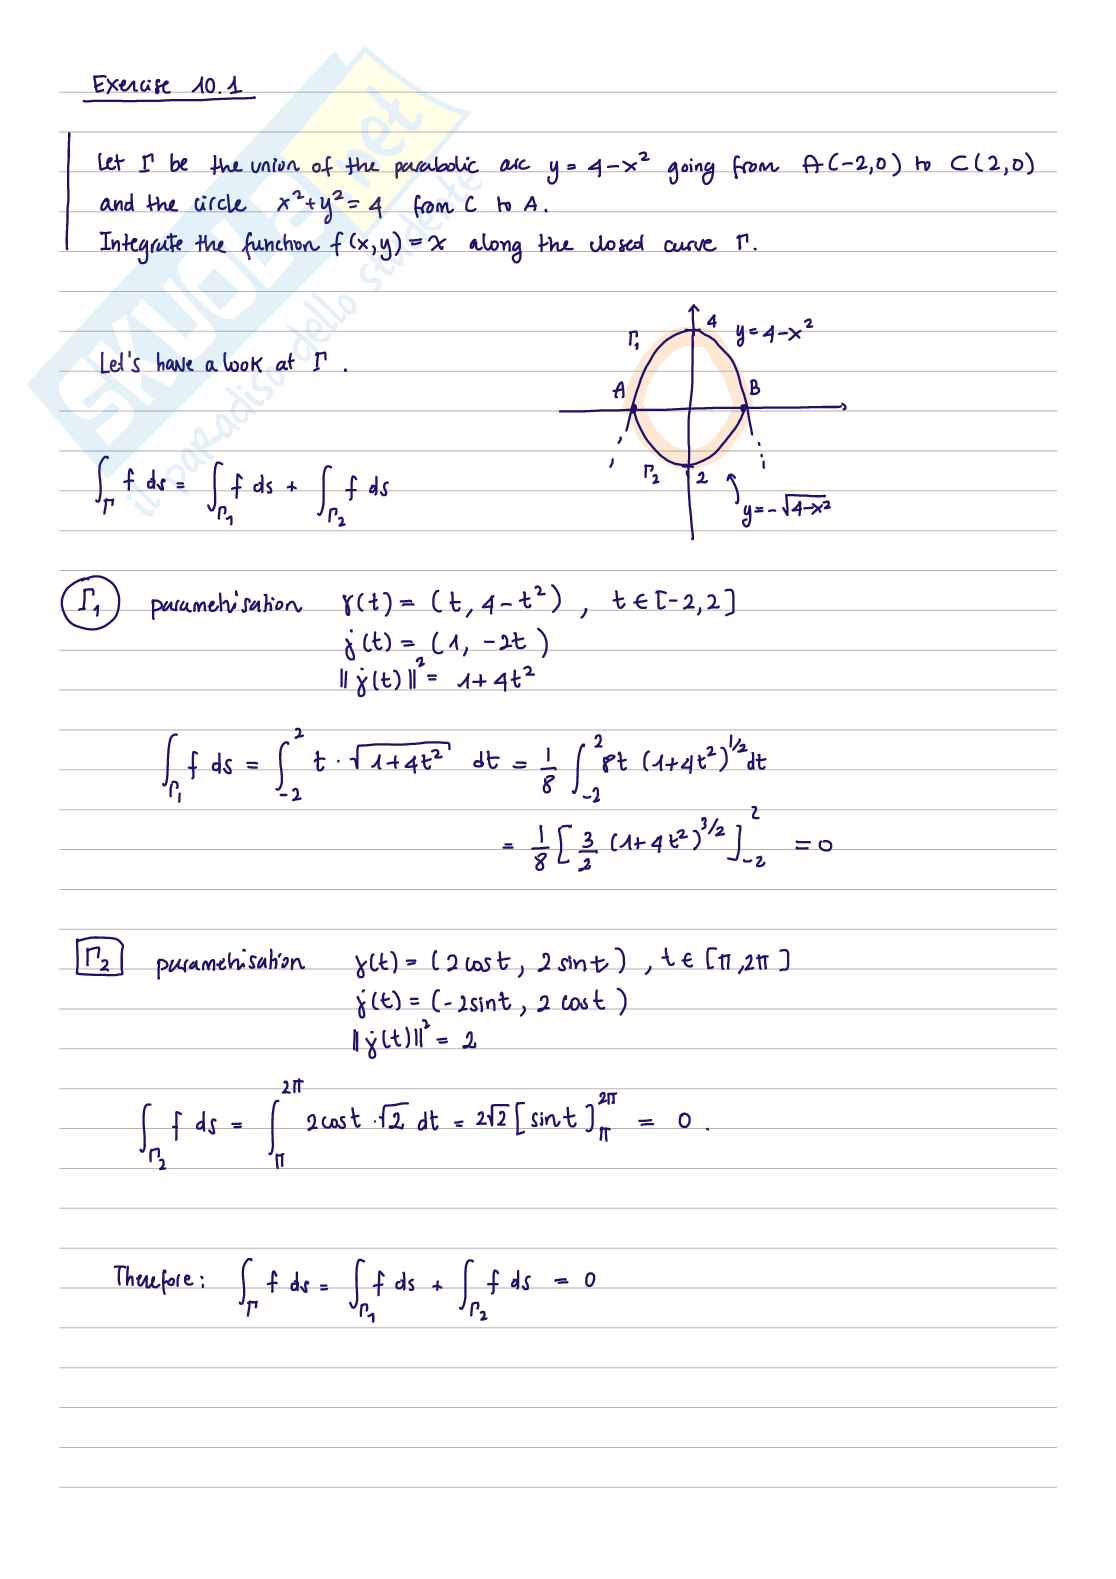 Exercise 10.1
Let Γ be the union of the parabolic arc y = 4-x² going from A(-2,0) to C(2,0)
and the circle x²+y²=4 from C to A.
Integrate the function f(x,y)=x along the closed curve Γ.
Let's have a look at Γ.
Γ₁ 4 y=4-x²
A B
Γ₂ 2 y=-√(4-x²)
∫_Γ f ds = ∫_Γ₁ f ds + ∫_Γ₂ f ds
Γ₁ parametrisation γ(t) = (t, 4-t²), t∈[-2,2]
γ̇(t) = (1, -2t)
||γ̇(t)||² = 1+4t²
∫_Γ₁ f ds = ∫_-2^2 t · √(1+4t²) dt = 1/8 ∫_-2^2 8t (1+4t²)^1/2 dt
= 1/8 [3/2 (1+4t²)^3/2]_-2^2 = 0
Γ₂ parametrisation γ(t) = (2cost, 2sint), t∈[π,2π]
γ̇(t) = (-2sint, 2cost)
||γ̇(t)||² = 2
∫_Γ₂ f ds = ∫_π^2π 2cost · √2 dt = 2√2 [sint]_π^2π = 0.
Therefore: ∫_Γ f ds = ∫_Γ₁ f ds + ∫_Γ₂ f ds = 0
SKUOLA.net
il paradiso dello studente